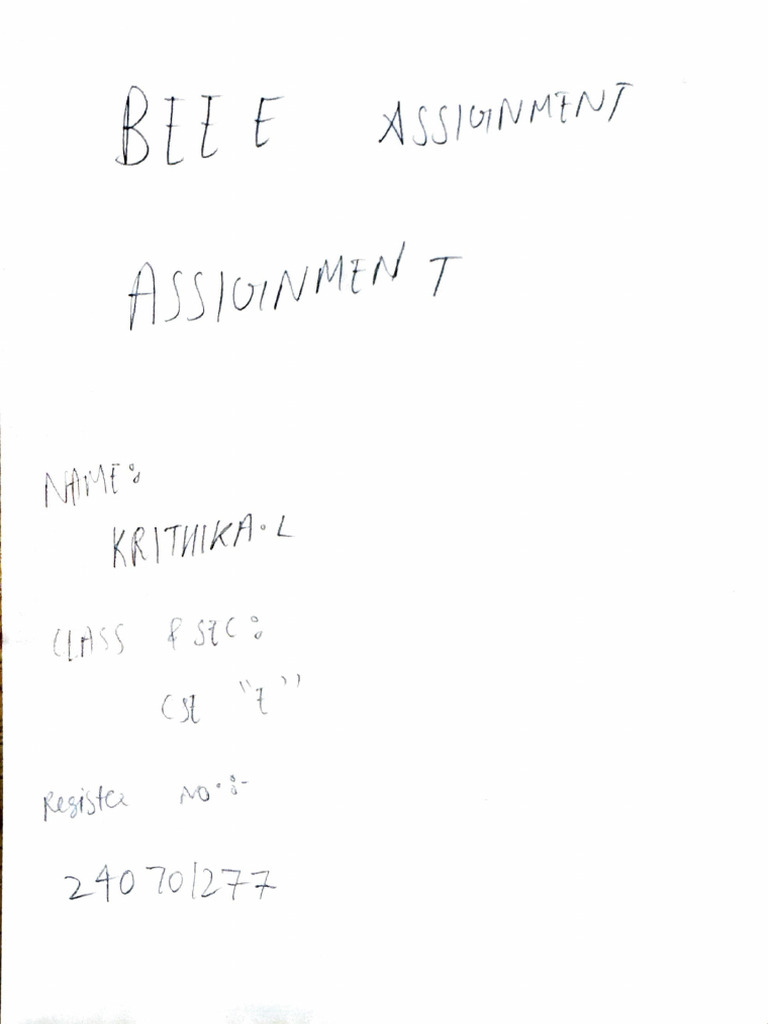 BEEE ASSIGNMENT
ASSIGNMENT
NAME:
KRITHIKA.L
CLASS & SEC:
CSE "E"
Register NO.:-
240701277